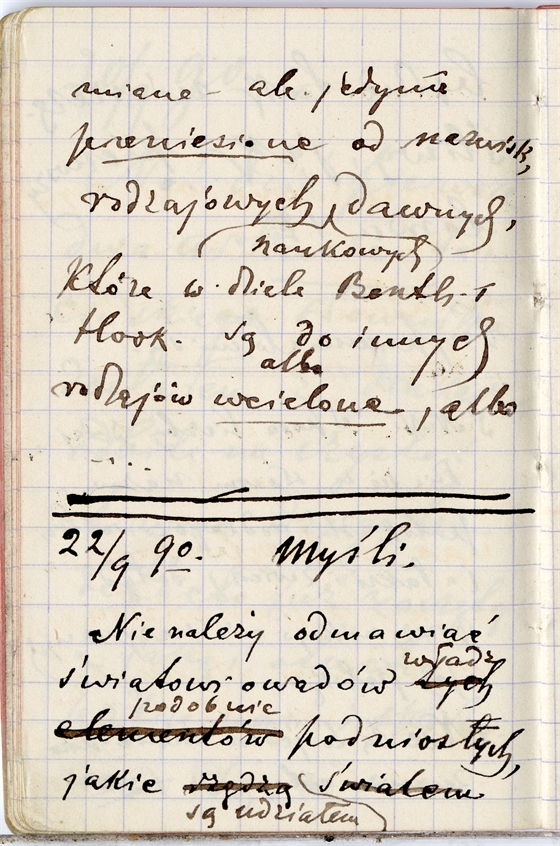 miane - ale jedynie
przeniesione od nazwisk,
rodzajowych, dawnych,
naukowych
które w dziele Benth. i
Hook. są do innych
albo
rodzajów wcielone, albo
....
22/9 90. Myśli.
Nie należy odmawiać
światowi owadów tych
podobnie
elementów podniosłych,
jakie rządzą światem
są udziałem